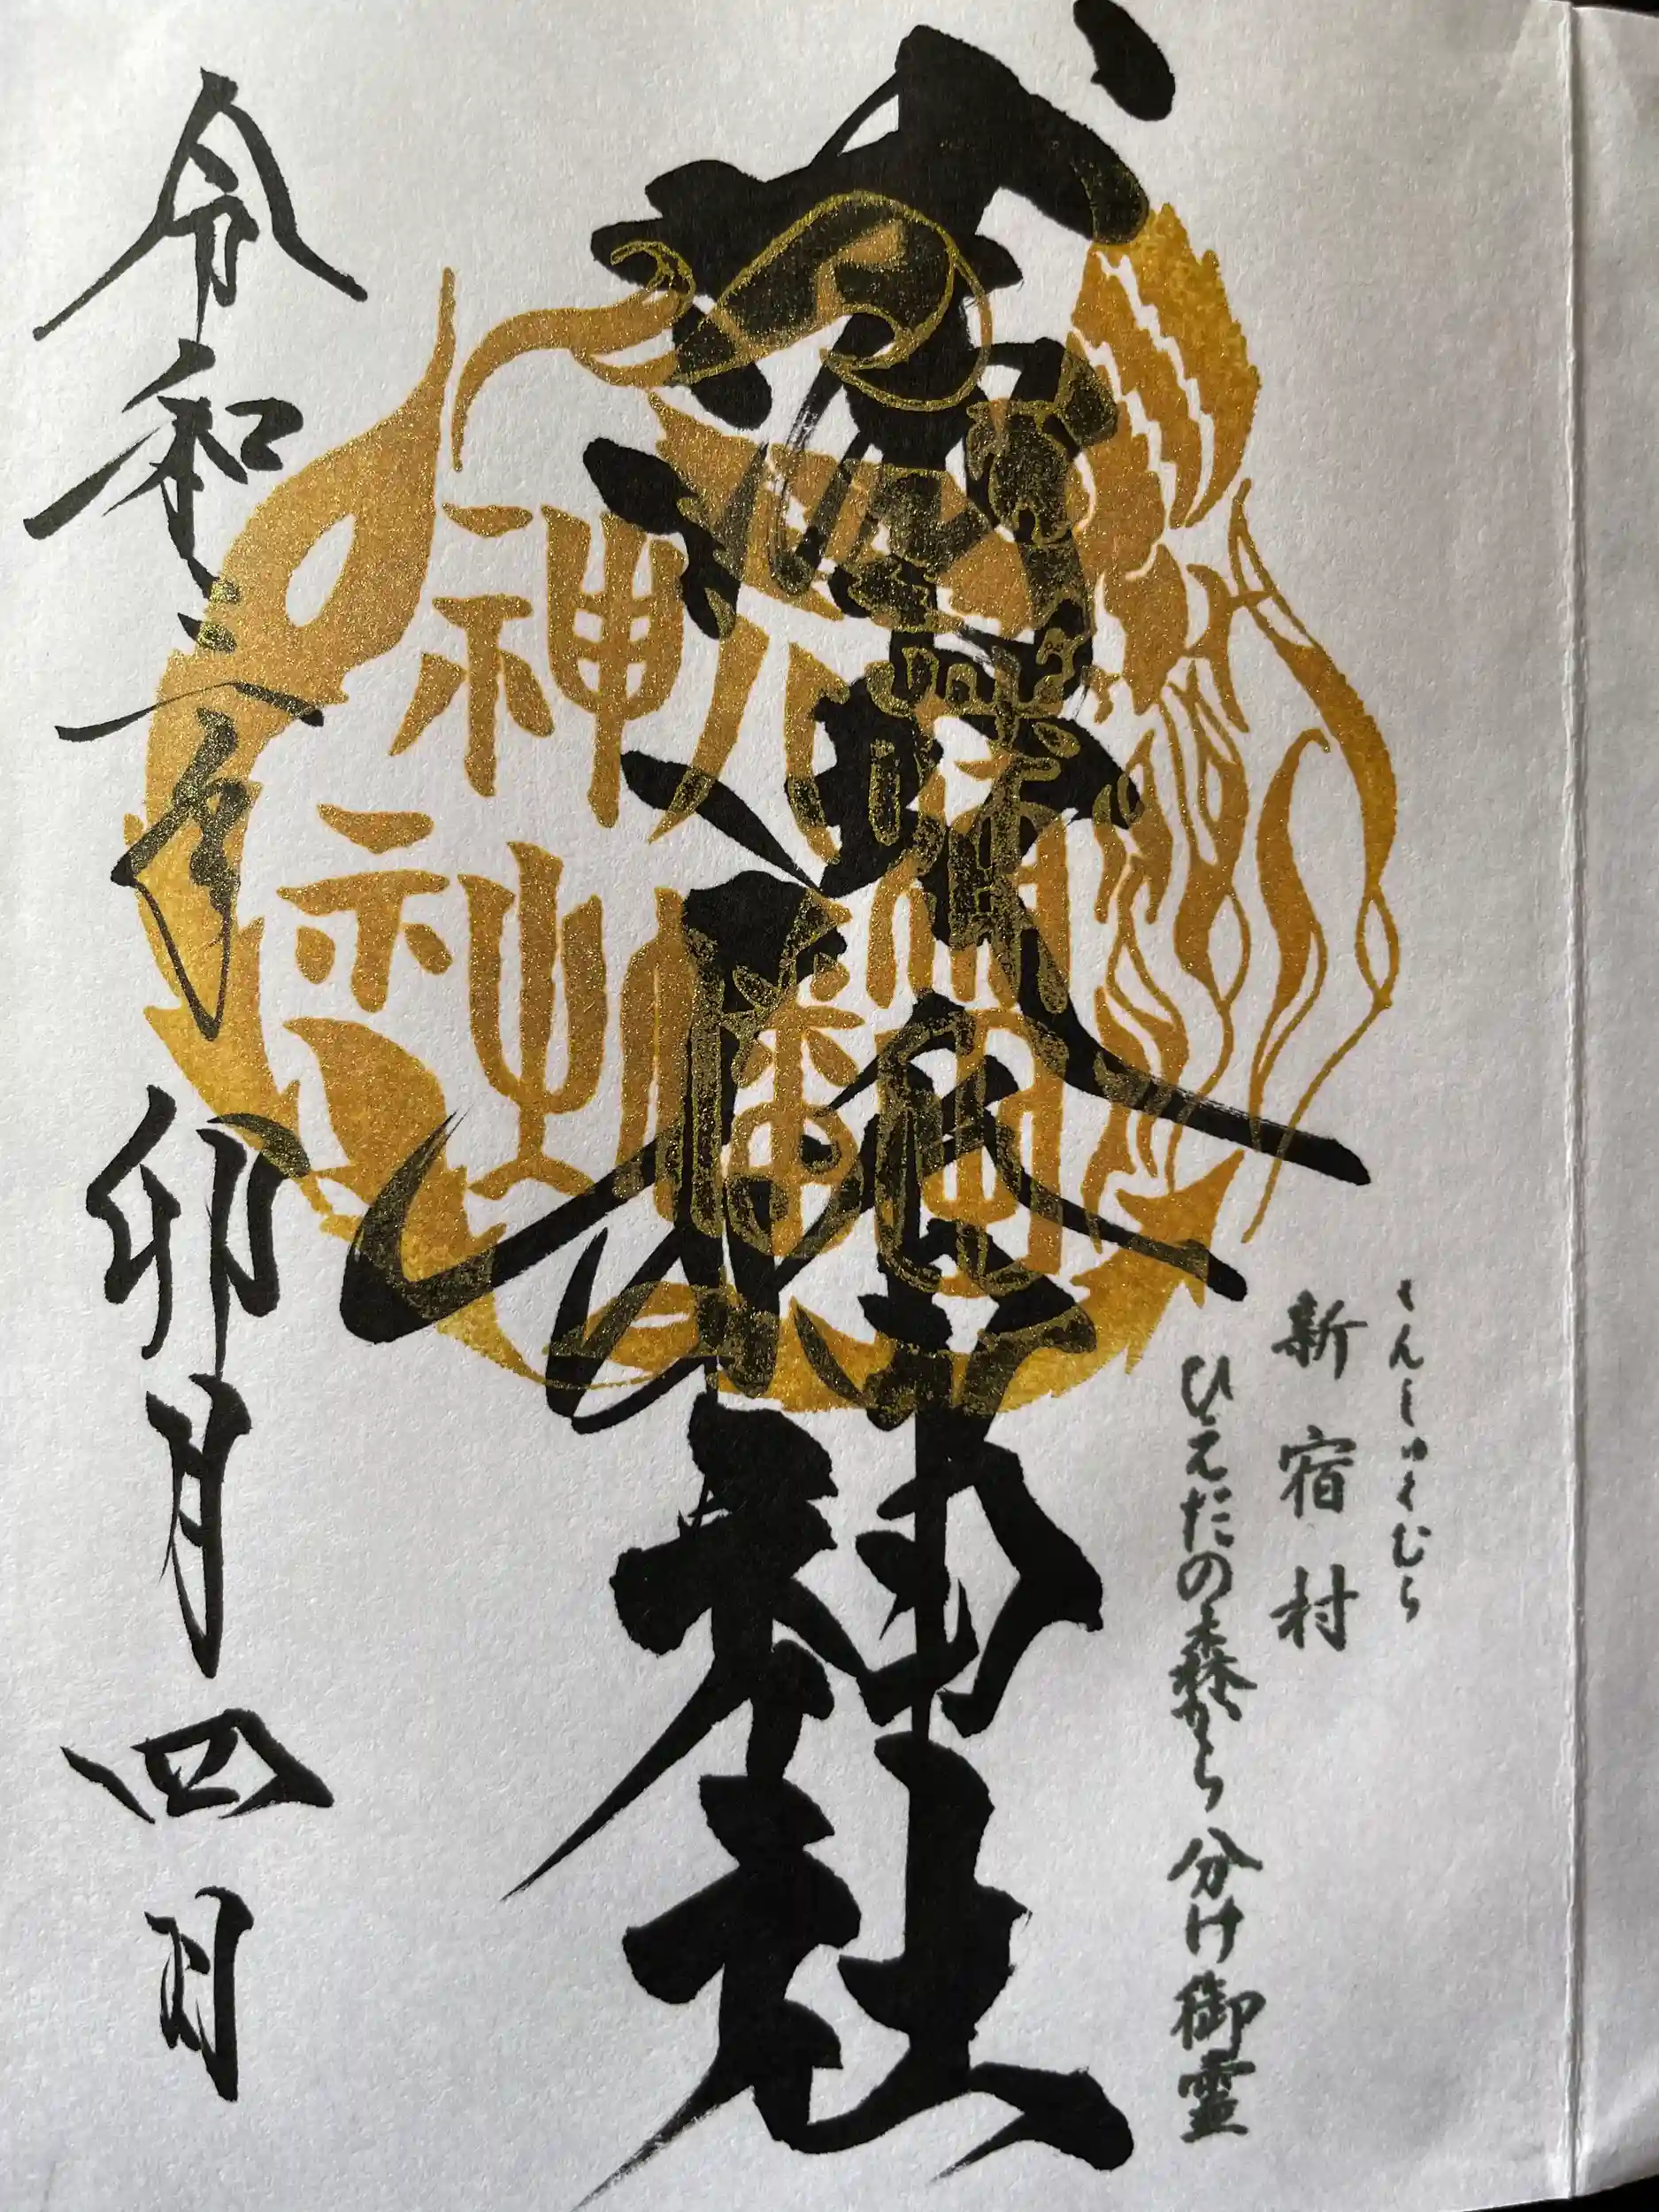 しんしゅくむら
新宿村
ひえだの森から 分け御霊
神社
蒲田
八幡
神社
令和六年 卯月四日